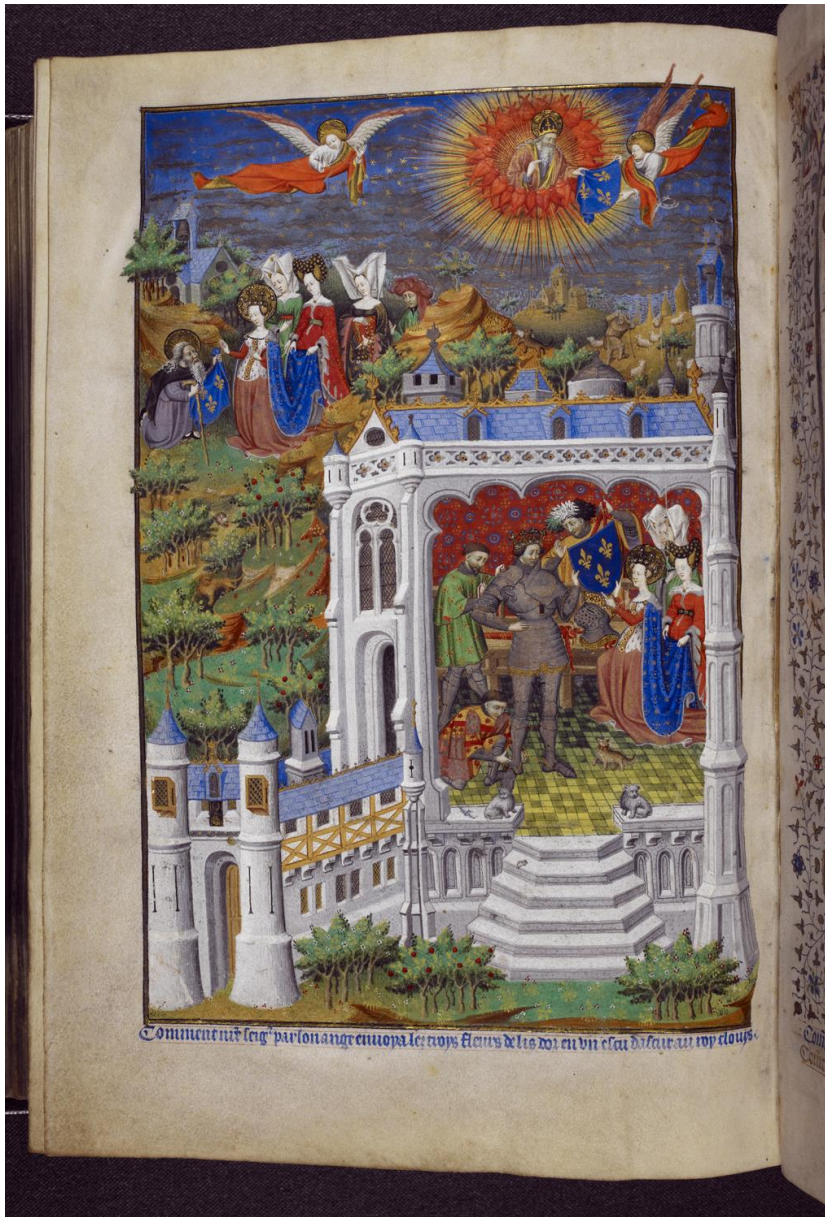 Comment nr̃e seigr̃ par son ange envoya les troys fleurs de lis dor en vn escu dasur au roy clouys.
Com